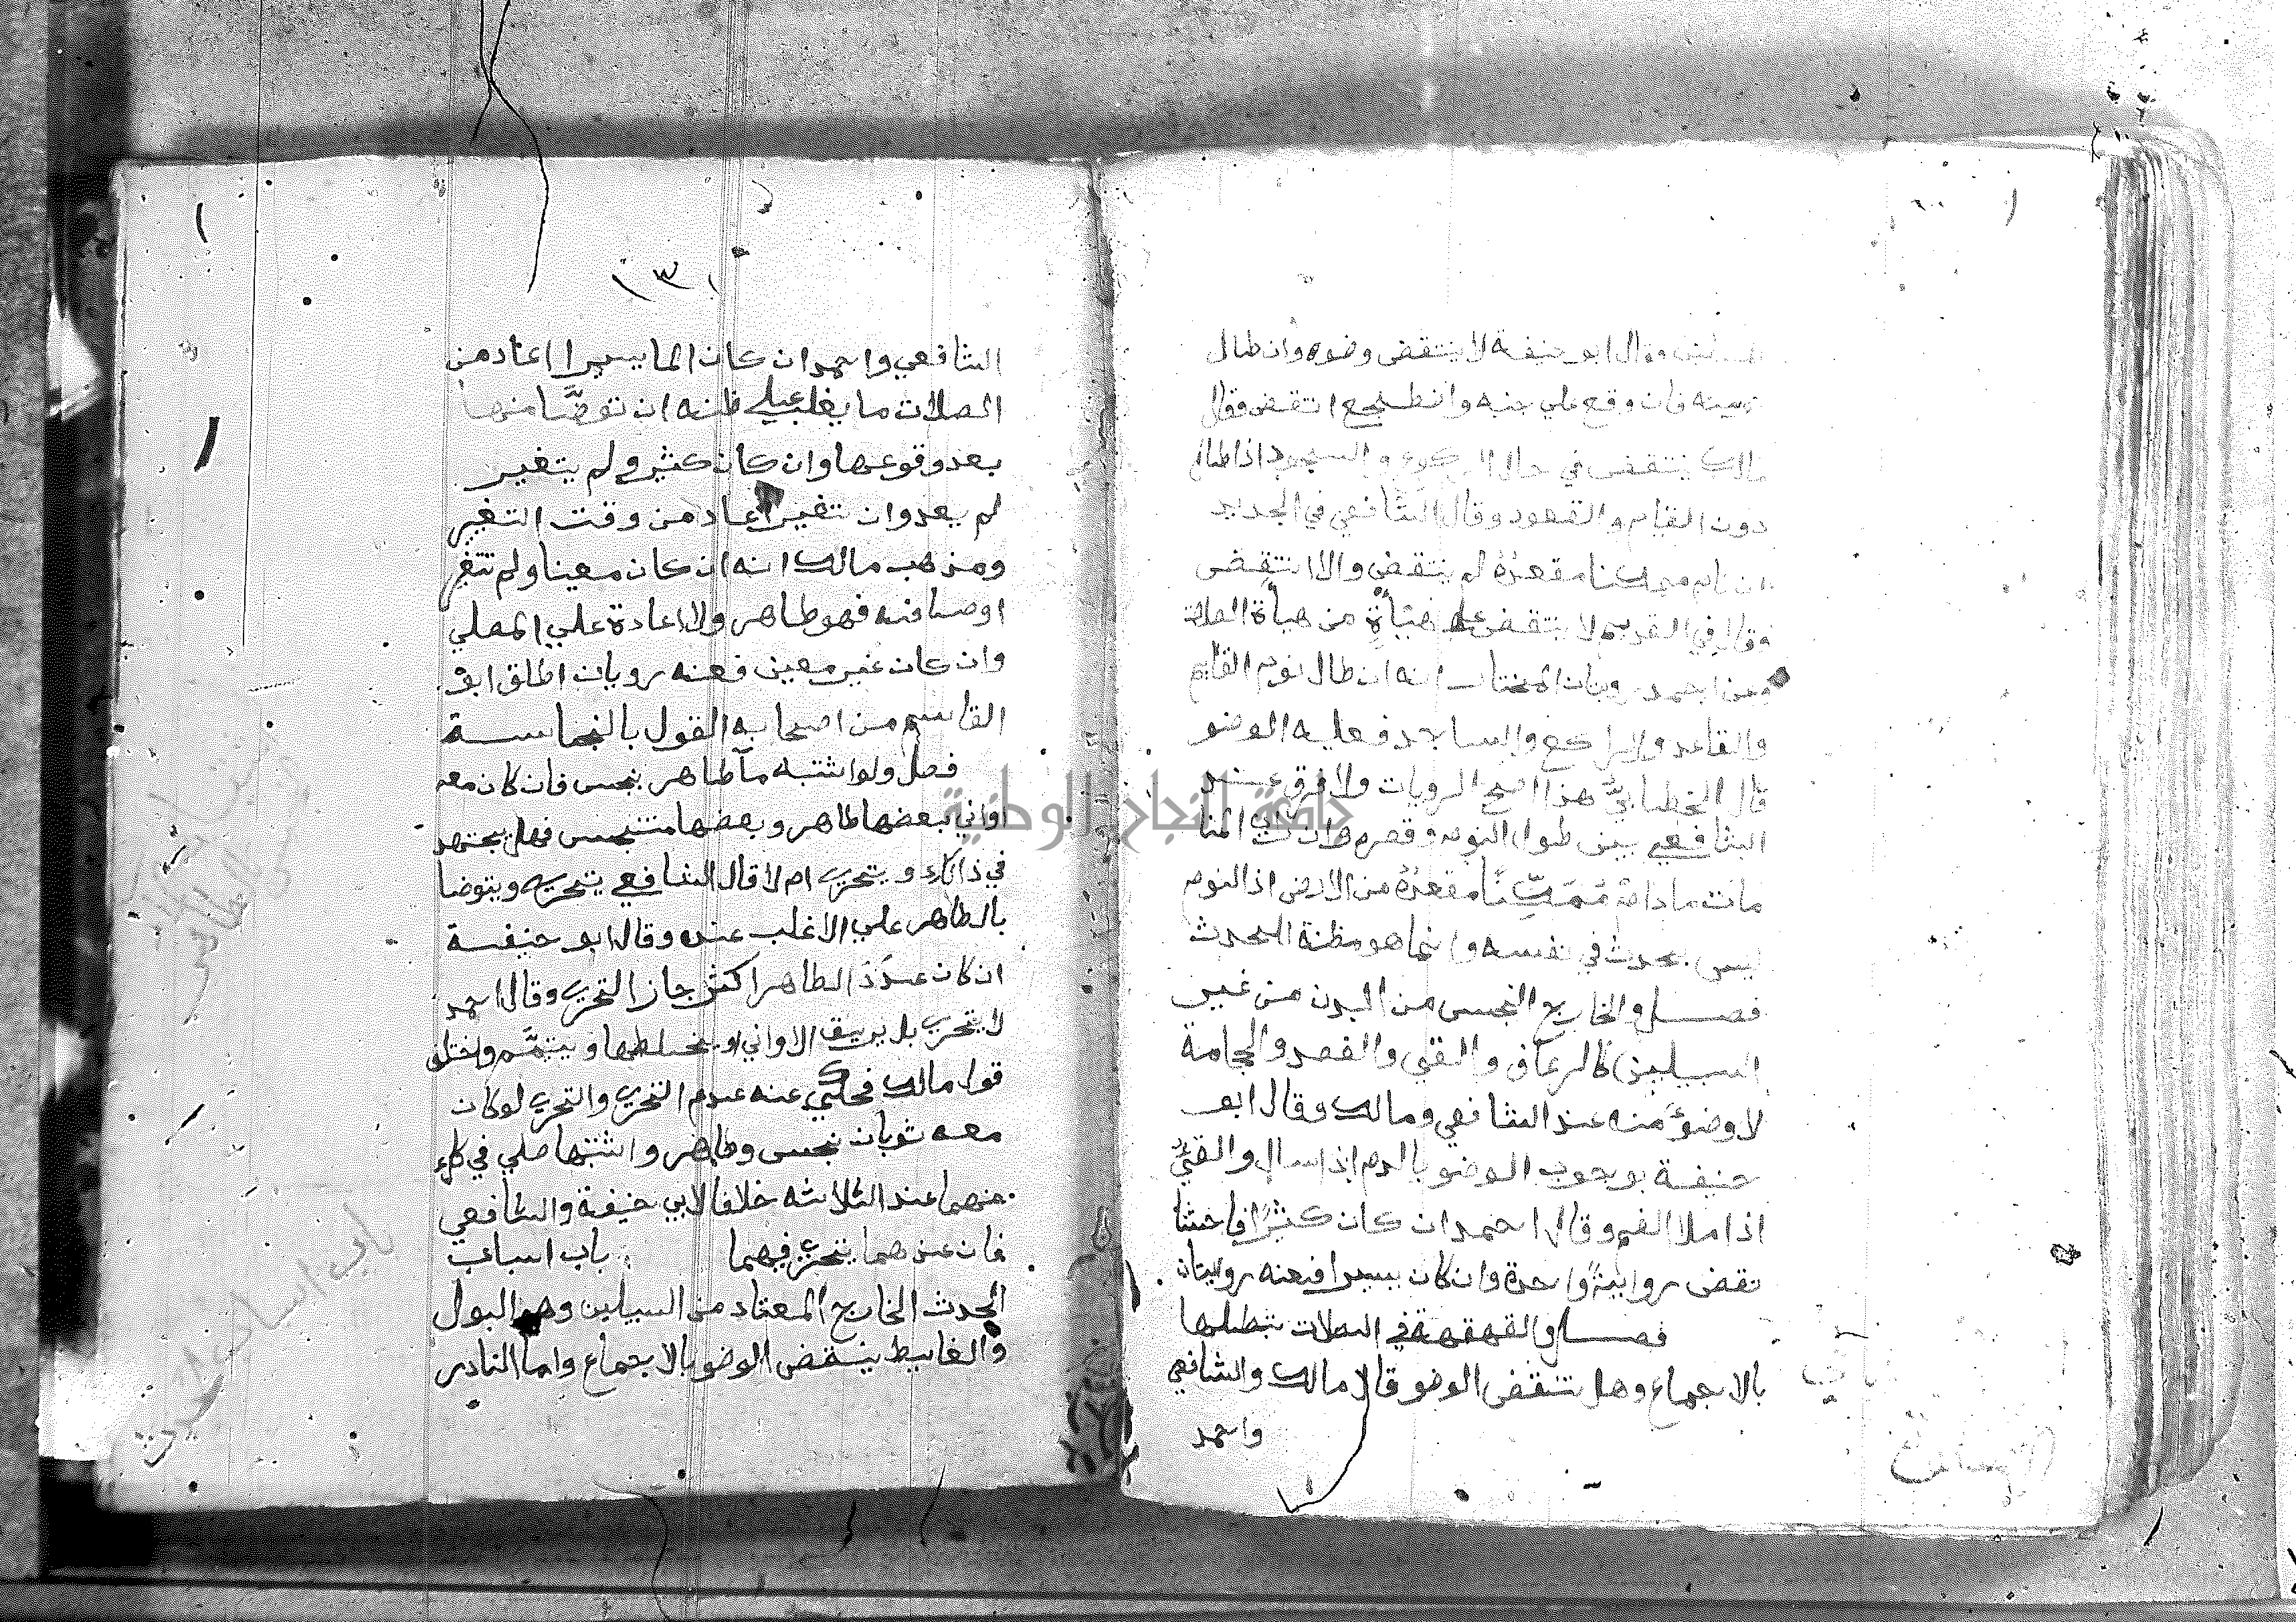 وقال ابو حنيفة لا ينتقض وضوه وان طال
نومه فان وقع علي جنبه وانطجع انتقض وقال
مالك ينتقض في حال الركوع والسجود اذا طال
دون القيام والقعود وقال الشافعي في الجديد
ان نام ممكنا مقعده لم ينتقض والا انتقض
وقال في القديم لا ينتقض علي هيأة من هيأة الصلاة
وعن احمد رويات المختار انه ان طال نوم القايم
والقاعد والراكع والساجد فعليه الوضو
قال الخطابي هذا اصح الرويات ولا فرق عند
الشافعي بين طول النوم وقصره وان راي المنا
مات مادامة ممكنا مقعده من الارض اذ النوم
ليس بحدث في نفسه وانما هو مظنة الحدث
فصل والخارج النجس من البدن من غير
السبيلين كالرعاف والقي والفصد والحجامة
لا وضؤ منه عند الشافعي ومالك وقال ابو
حنيفة بوجوب الوضو بالدم اذا سال والقئ
اذا ملا الفم وقال احمد ان كان كثيرا فاحشا
نقض رواية واحدة وان كان يسيرا فعنه روايتان
فصل والقهقهة في الصلات تبطلها
بالاجماع وهل تنقض الوضو قال مالك والشافعي
واحمد
١٣
الشافعي واحمد ان كان الما يسيرا اعاد من
الصلات ما يغلب علي ظنه ان توضا منها
بعد وقوعها وان كان كثير ولم يتغير
لم يعد وان تغير اعاد من وقت التغير
ومذهب مالك انه ان كان معينا ولم تتغير
اوصافه فهو طاهر ولا اعادة علي المصلي
وان كان غير معين فعنه رويان اطلق ابو
القاسم من اصحابه القول بالنجاسة
فصل ولو اشتبه مآ طاهر بنجس فان كان معه
اواني بعضها طاهر وبعضها متنجس فهل يجتهد
في ذالك ويتحري ام لا قال الشافعي يتحري ويتوضا
بالطاهر علي الاغلب عنده وقال ابو حنيفة
ان كان عدد الطاهر اكثر جاز التحري وقال احمد
لا يتحري بل يريق الاواني او يخلطها ويتيمم واختلف
قول مالك فحكي عنه عدم التحري والتحري لو كان
معه ثوبان نجس وطاهر واشتبها صلي في كل
منهما عند الثلاثه خلافا لابي حنيفة والشافعي
فان عندهما يتحري فيهما باب اسباب
الحدث الخارج المعتاد من السبيلين وهو البول
والغايط ينقض الوضو بالاجماع واما النادر
جامعة النجاح الوطنية